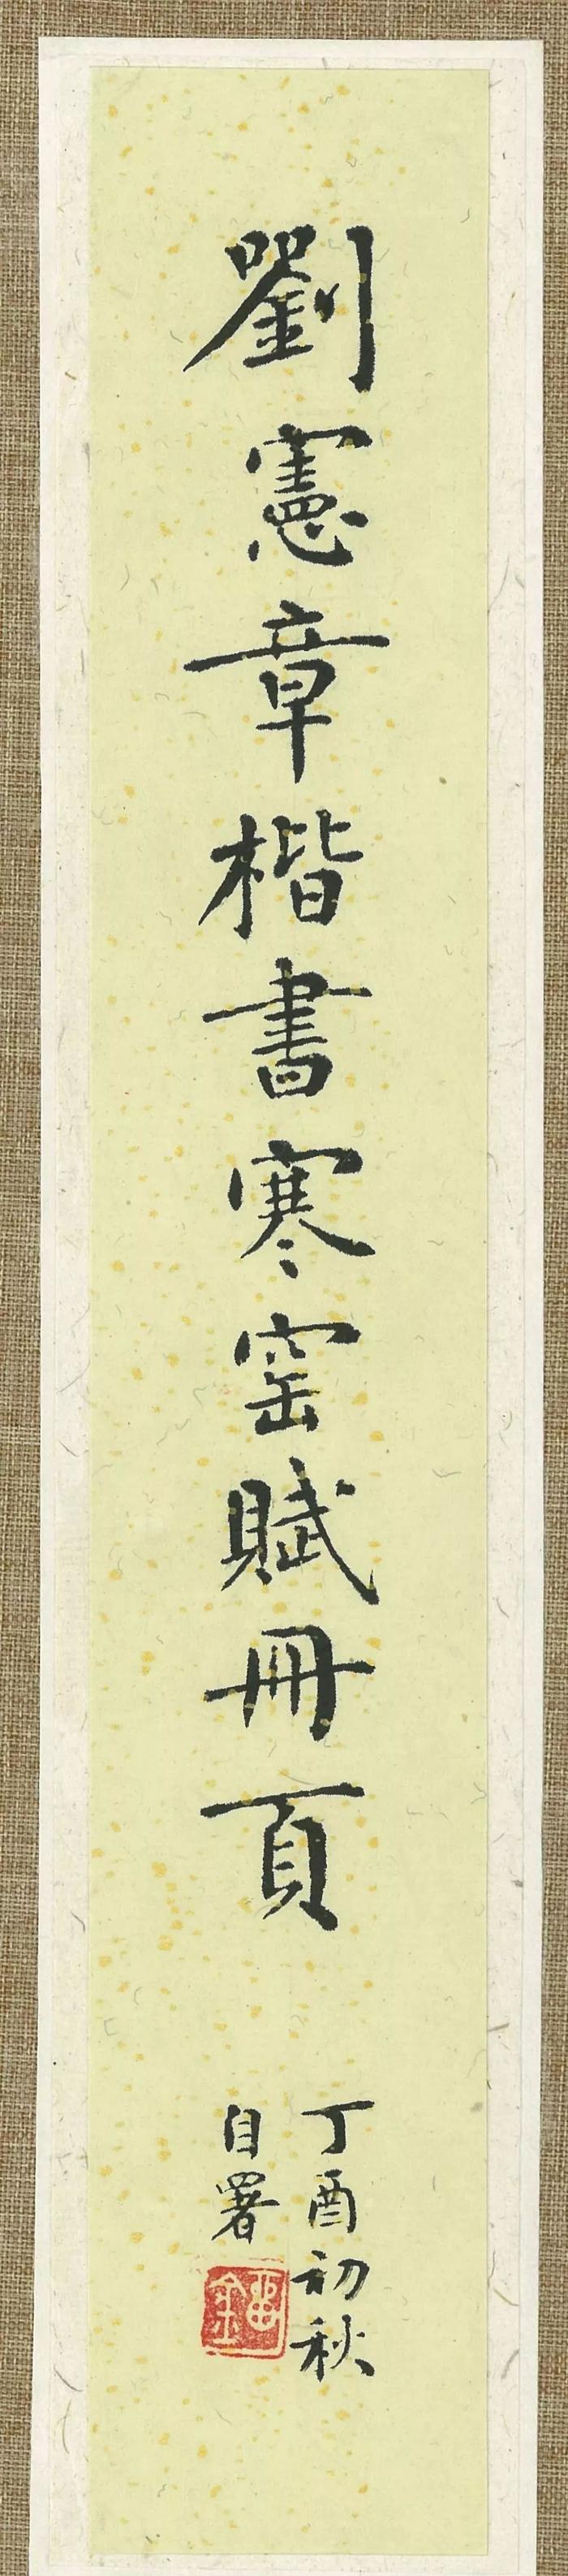 劉憲章楷書寒窑賦冊頁
丁酉初秋
自署